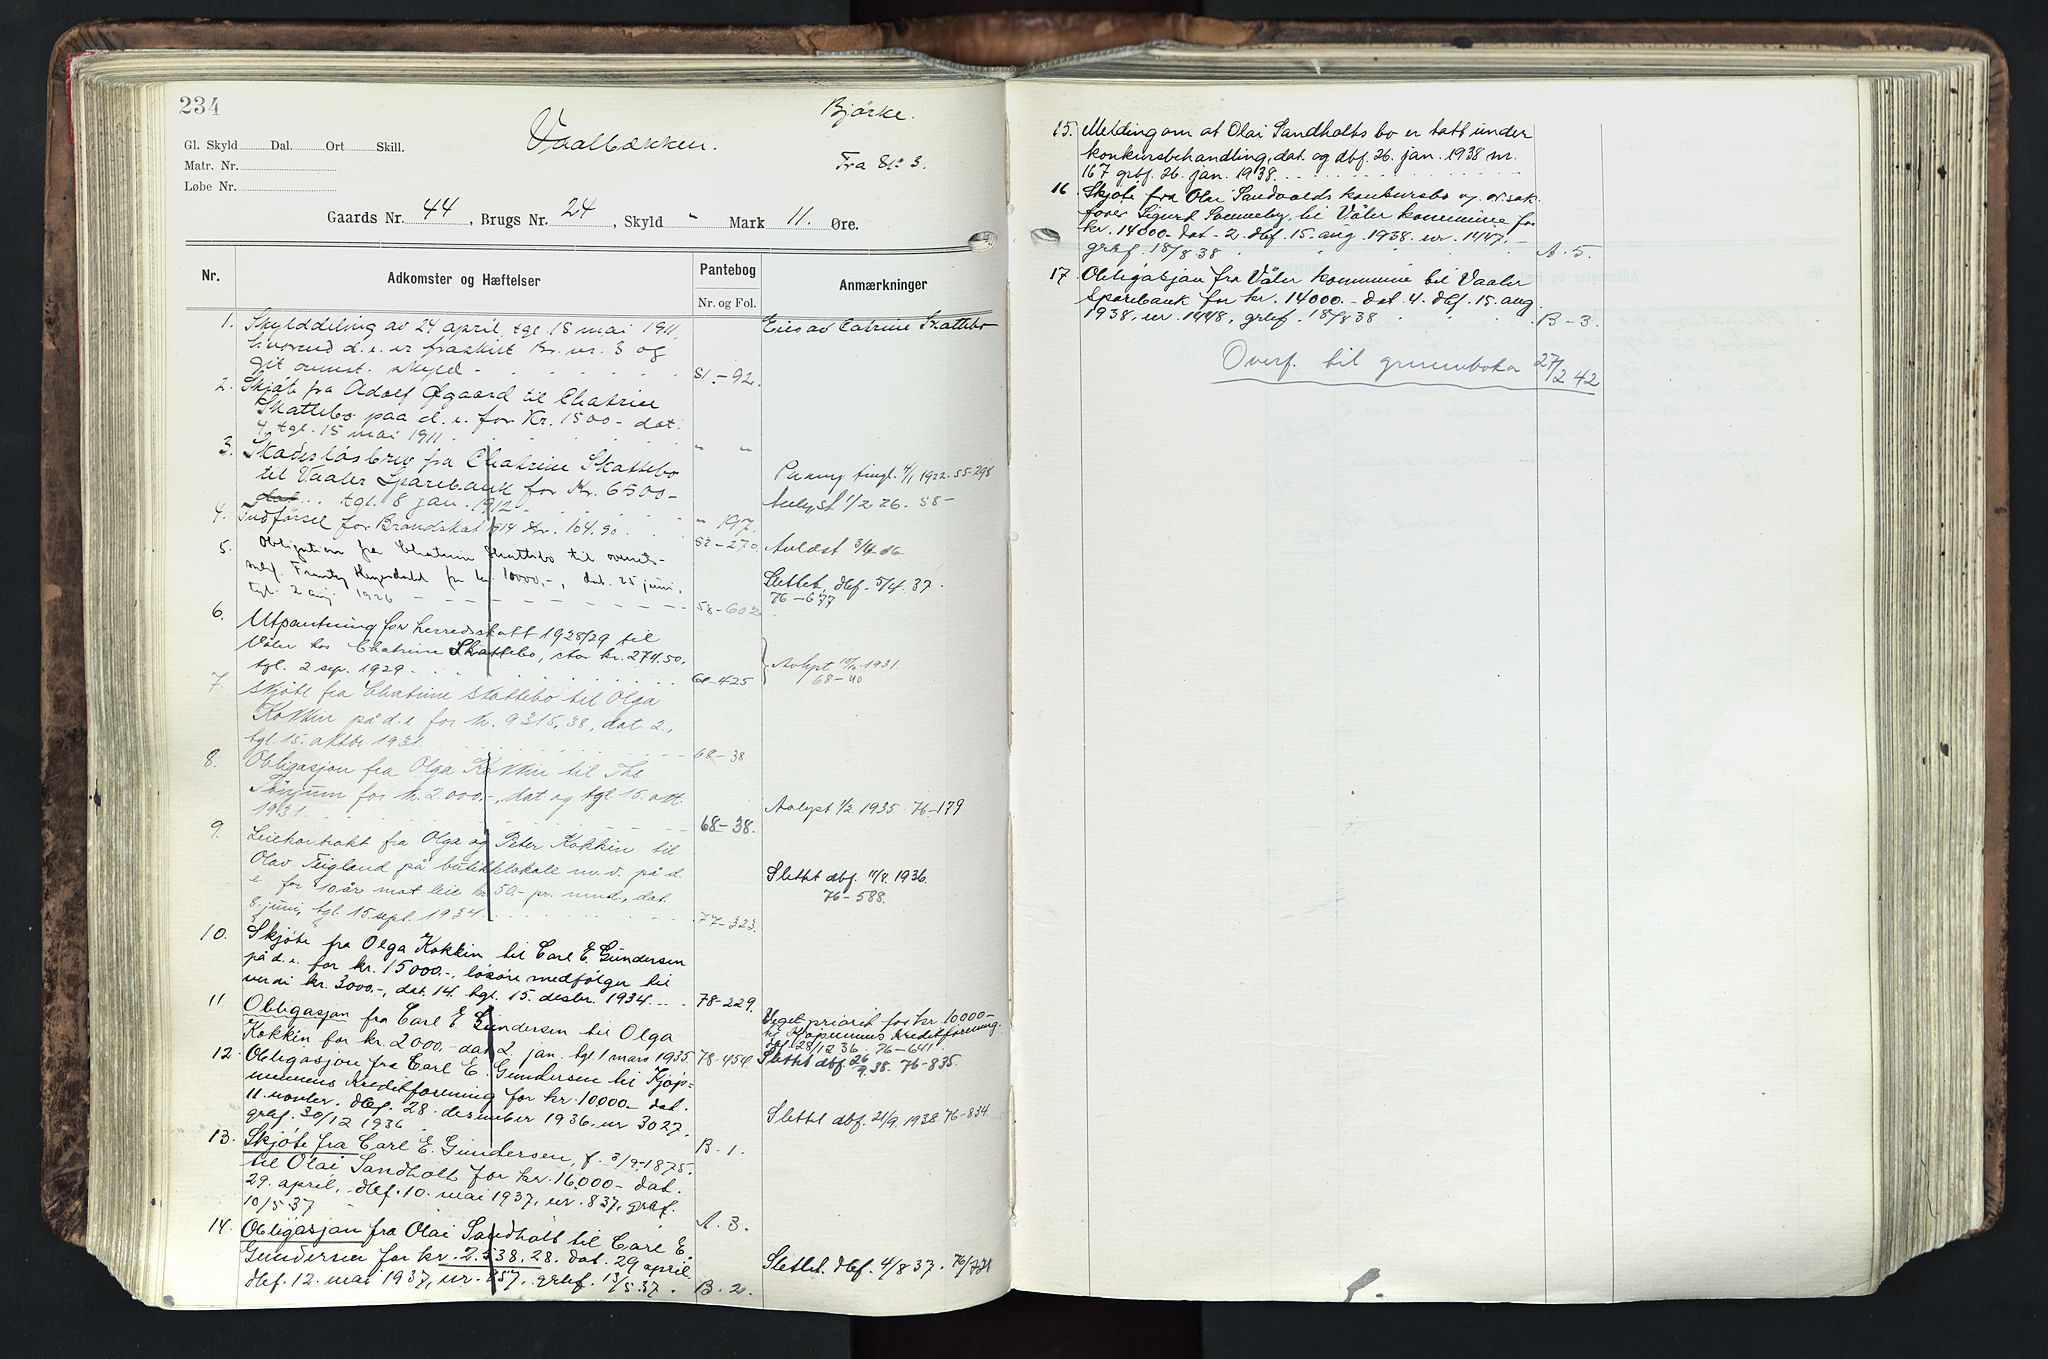 234
Bjørke.
Vaalbækken.
Fra 81° 3.
Gl. Skyld Dal. Ort Skill.
Matr. Nr.
Løbe Nr.
Gaards Nr. 44, Brugs Nr. 24, Skyld " Mark 11. Øre.
Nr. Adkomster og Hæftelser Pantebog Anmærkninger
Nr. og Fol.
1. Skylddeling av 24 april, tgl. 15 mai 1911, Eies av Catrine Skattebo
hvorved d. e. er fraskilt Br. nr. 3 og
git ovenst. skyld 51.-92.
2. Skjøte fra Adolf Øgaard til Chatrine
Skattebo paa d. e. for Kr. 1500- dat.
4, tgl. 15 mai 1911 " "
3. Skadesløsbrev fra Chatrine Skattebo
til Vaaler Sparebank for Kr. 6500- tingl. 4/1 1922. 55-298
dat... tgl. 8 jan. 1912 " 197. Avlyst 1/2 26. 58-
4. Indførsel for Brandskat 1914 Kr. 104.90 52-270. Avlæst
5. Obligation fra Chatrine Skattebo til overrets-
sakf. for kr. 10000,-, dat. 25 juni, Slettet, dbf. 5/4.37.
tgl. 2 aug 1926 58-602 76-677
6. Utpantning for herredsskatt 1928/29 til
Våler hos Chatrine Skattebo, stor kr. 274.50,
tgl. 2 sep. 1929. 60-425 Avlyst 1931.
68-40
7. Skjøte fra Chatrine Skattebo til Olga
Kokkin på d. e. for kr. 9315,38, dat. 2.,
tgl. 15. oktbr. 1931. 68-38
8. Obligasjon fra Olga Kokkin til Ths.
Tønjum for kr. 2.000,-, dat og tgl. 15. okt.
1931. 68-38. Avlyst 1/2 1935. 76-179
9. Leiekontrakt fra Olga og Peter Kokkin til
Olav Teigland på butikklokale m. v. på d.
e. for 10 år mot leie kr. 50,- pr. mnd., dat. Slettet dbf. 11/8. 1936.
8. juni, tgl. 15. sept. 1934. 77-323. 76-588.
10. Skjøte fra Olga Kokkin til Carl E. Gundersen
på d. e. for kr. 15000.-, løsøre medfølger til
verdi kr. 3000.-, dat. 14. tgl. 15. desbr. 1934. 78-229.
11 Obligasjon fra Carl E Gundersen til Olga Veget prioret for kr. 10000-
Kokkin for kr. 2000.- dat 2. jan. tgl 1 mars 1935 78-454 til Kjøpmennenes Kredittforening.
dbf 28/12 36. 76-641.
12. Obligasjon fra Carl E. Gundersen til Kjøp- Slettet dbf. 26/9.38. 76-835.
mennens Kreditforening for kr. 10000.- dat.
11. novbr. dbf. 28. desember 1936. nr 3027, Slettet dbf. 21/9. 1938. 76-834.
grbf. 30/12 1936 B. 1.
13. Skjøte fra Carl E. Gundersen, f. 3/9-1875.
til Olai Sandholt for kr. 16.000- dat.
29. april, dbf. 10. mai 1937, nr. 837, grbf.
10/5.37 A. 3.
14. Obligasjon fra Olai Sandholt til Carl E.
Gundersen for kr. 2.538.28. dat. 29 april Slettet. dbf. 4/8 37. 76/721
dbf. 12. mai 1937, nr. 857, grbf. 13/5.37. B. 2.
15. Melding om at Olai Sandholts bo er tatt under
konkursbehandling, dat. og dbf. 26. jan. 1938 nr.
167 grbf. 26. jan. 1938.
16 Skjøte fra Olai Sandvolds konkursbo v. o.r.sak-
fører Sigurd Svenneby, til Våler kommune for
kr. 14000- dat. 2. dbf. 15. aug. 1938. nr. 1447.
grbf. 18/8 38 A. 5.
17 Obligasjon fra Våler kommune til Vaaler
Sparebank for kr. 14000.- dat. 4. dbf. 15. aug.
1938. nr. 1448, grbf. 18/8 38 B-3.
Overf. til grunnboka 27/2 42